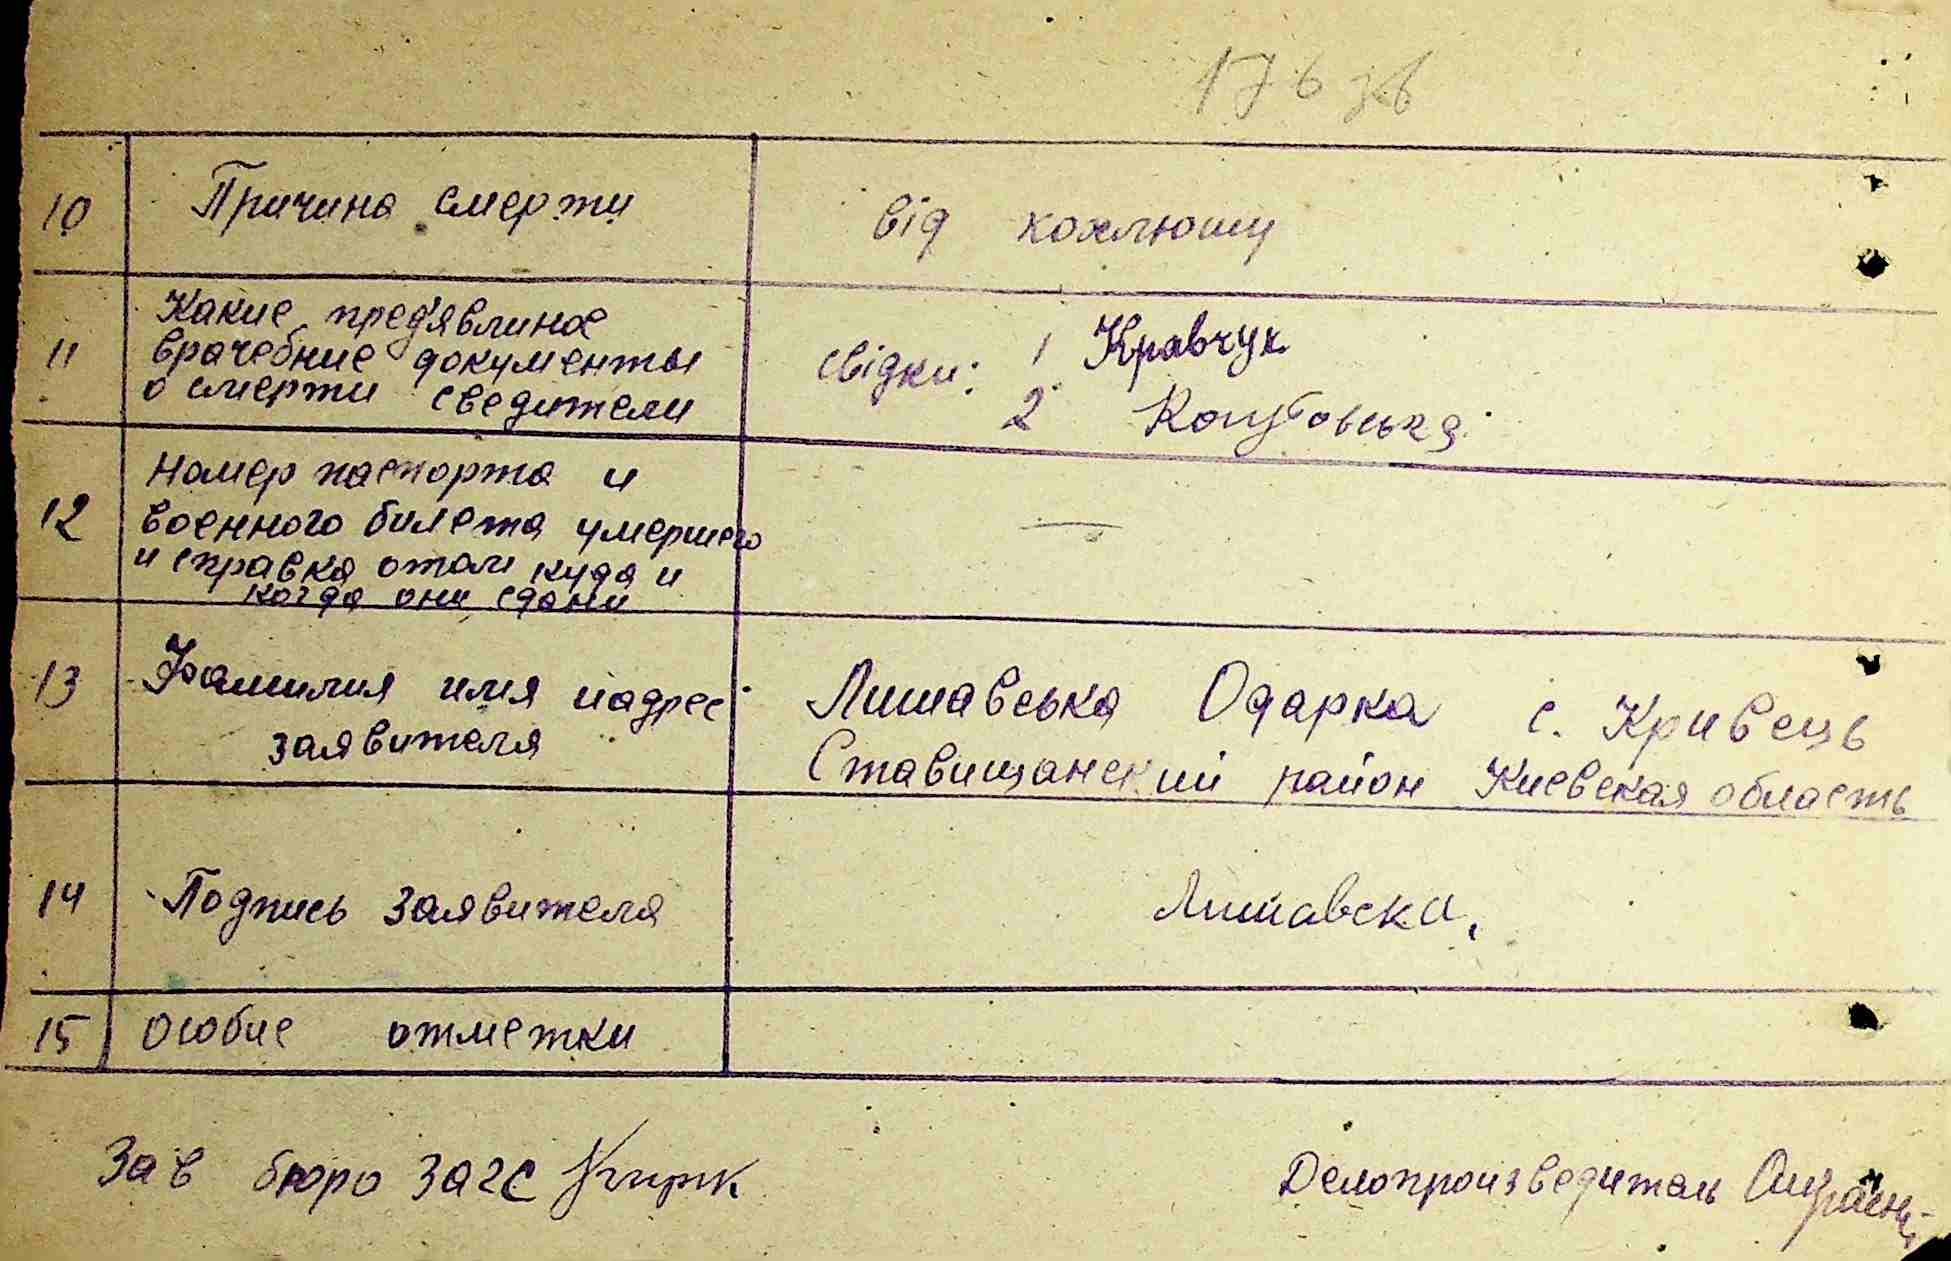 176 зв
10 Причина смерти від коклюшу
11 Какие предъявлиное
врачебние документы
о смерти сведители
свідки: 1 Кравчук
2
12 Номер паспорта и
военного билета умершего
и справка отом куда и
когда они сдани —
13 Фамилия имя иадрес
заявителя
Лишавська Одарка с. Кривець
Ставищанский район Киевская область
14 Подпись заявителя Лишавска,
15 особие отметки
Зав бюро загс
Делопроизводитель